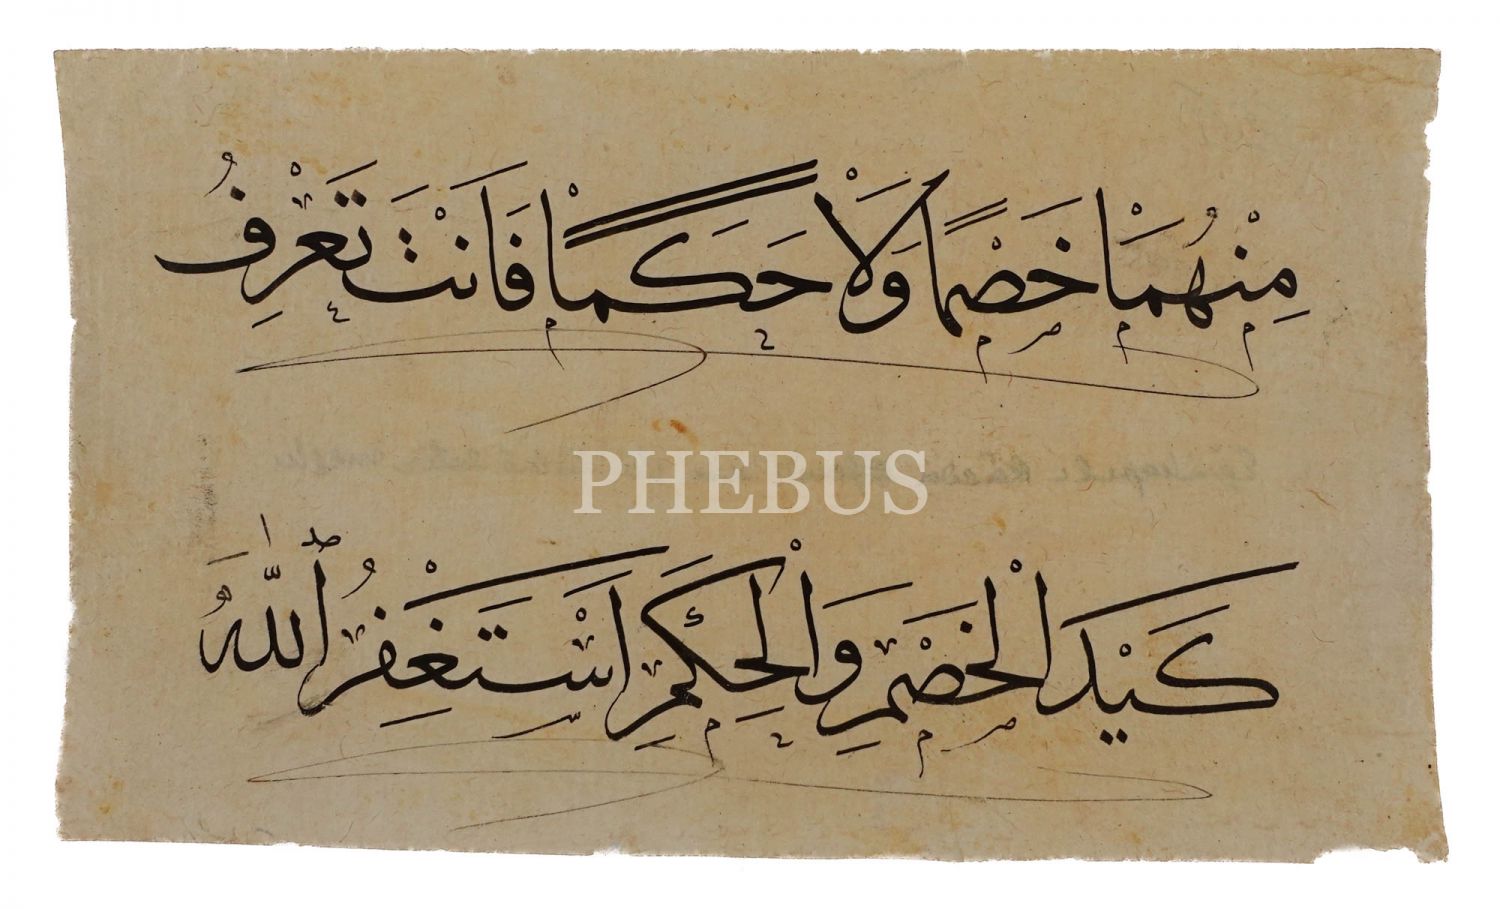 مِنْهُمَا خَصْمًا وَلَا حَكَمًا فَأَنْتَ تَعْرِفُ
PHEBUS
كَيْدَ الْخَصْمِ وَالْحَكَمِ اَسْتَغْفِرُ اللّٰهَ